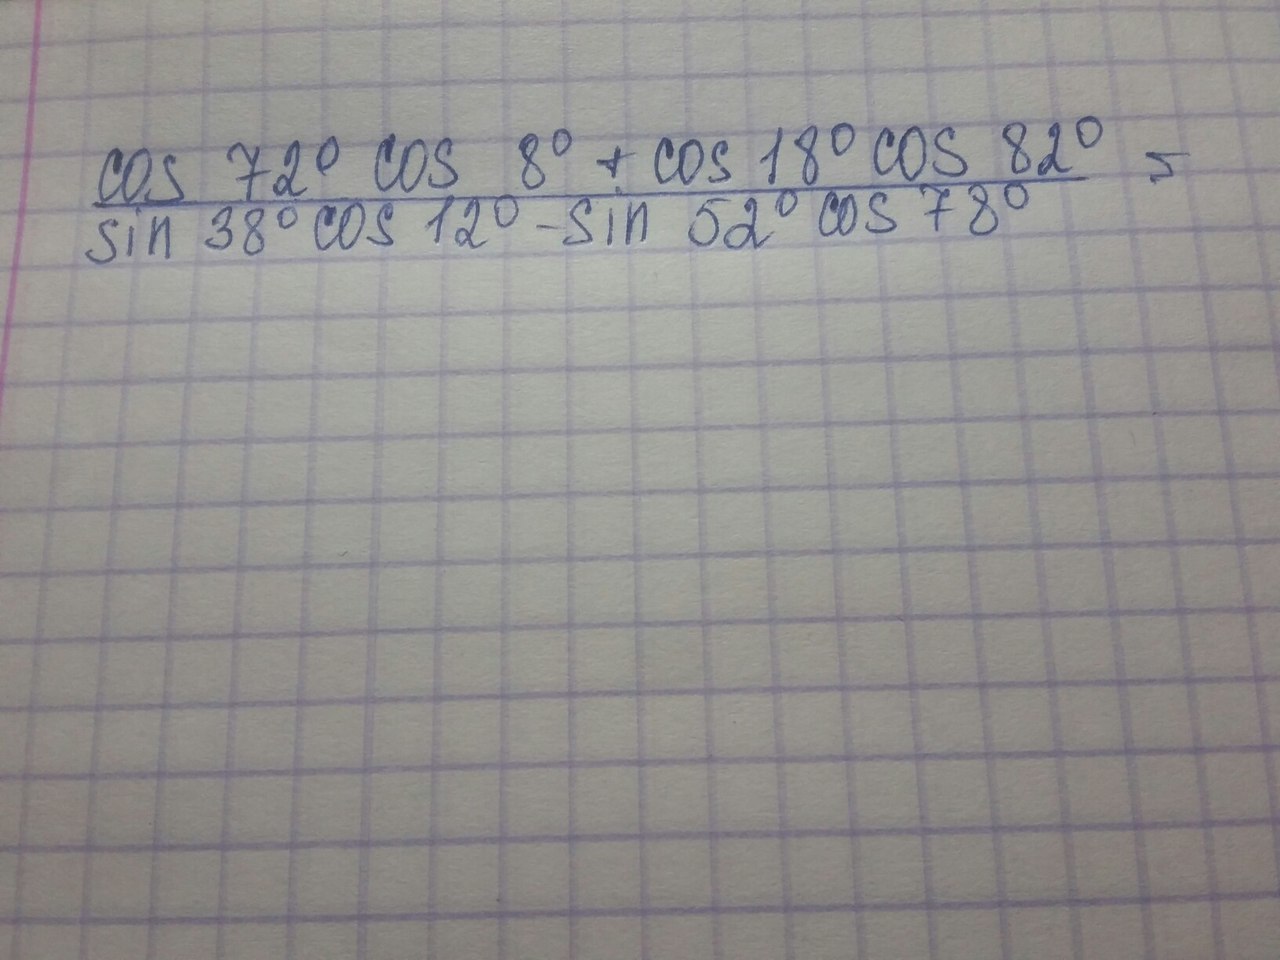 cos 72° cos 8° + cos 18° cos 82° =
sin 38° cos 12° - sin 52° cos 78°